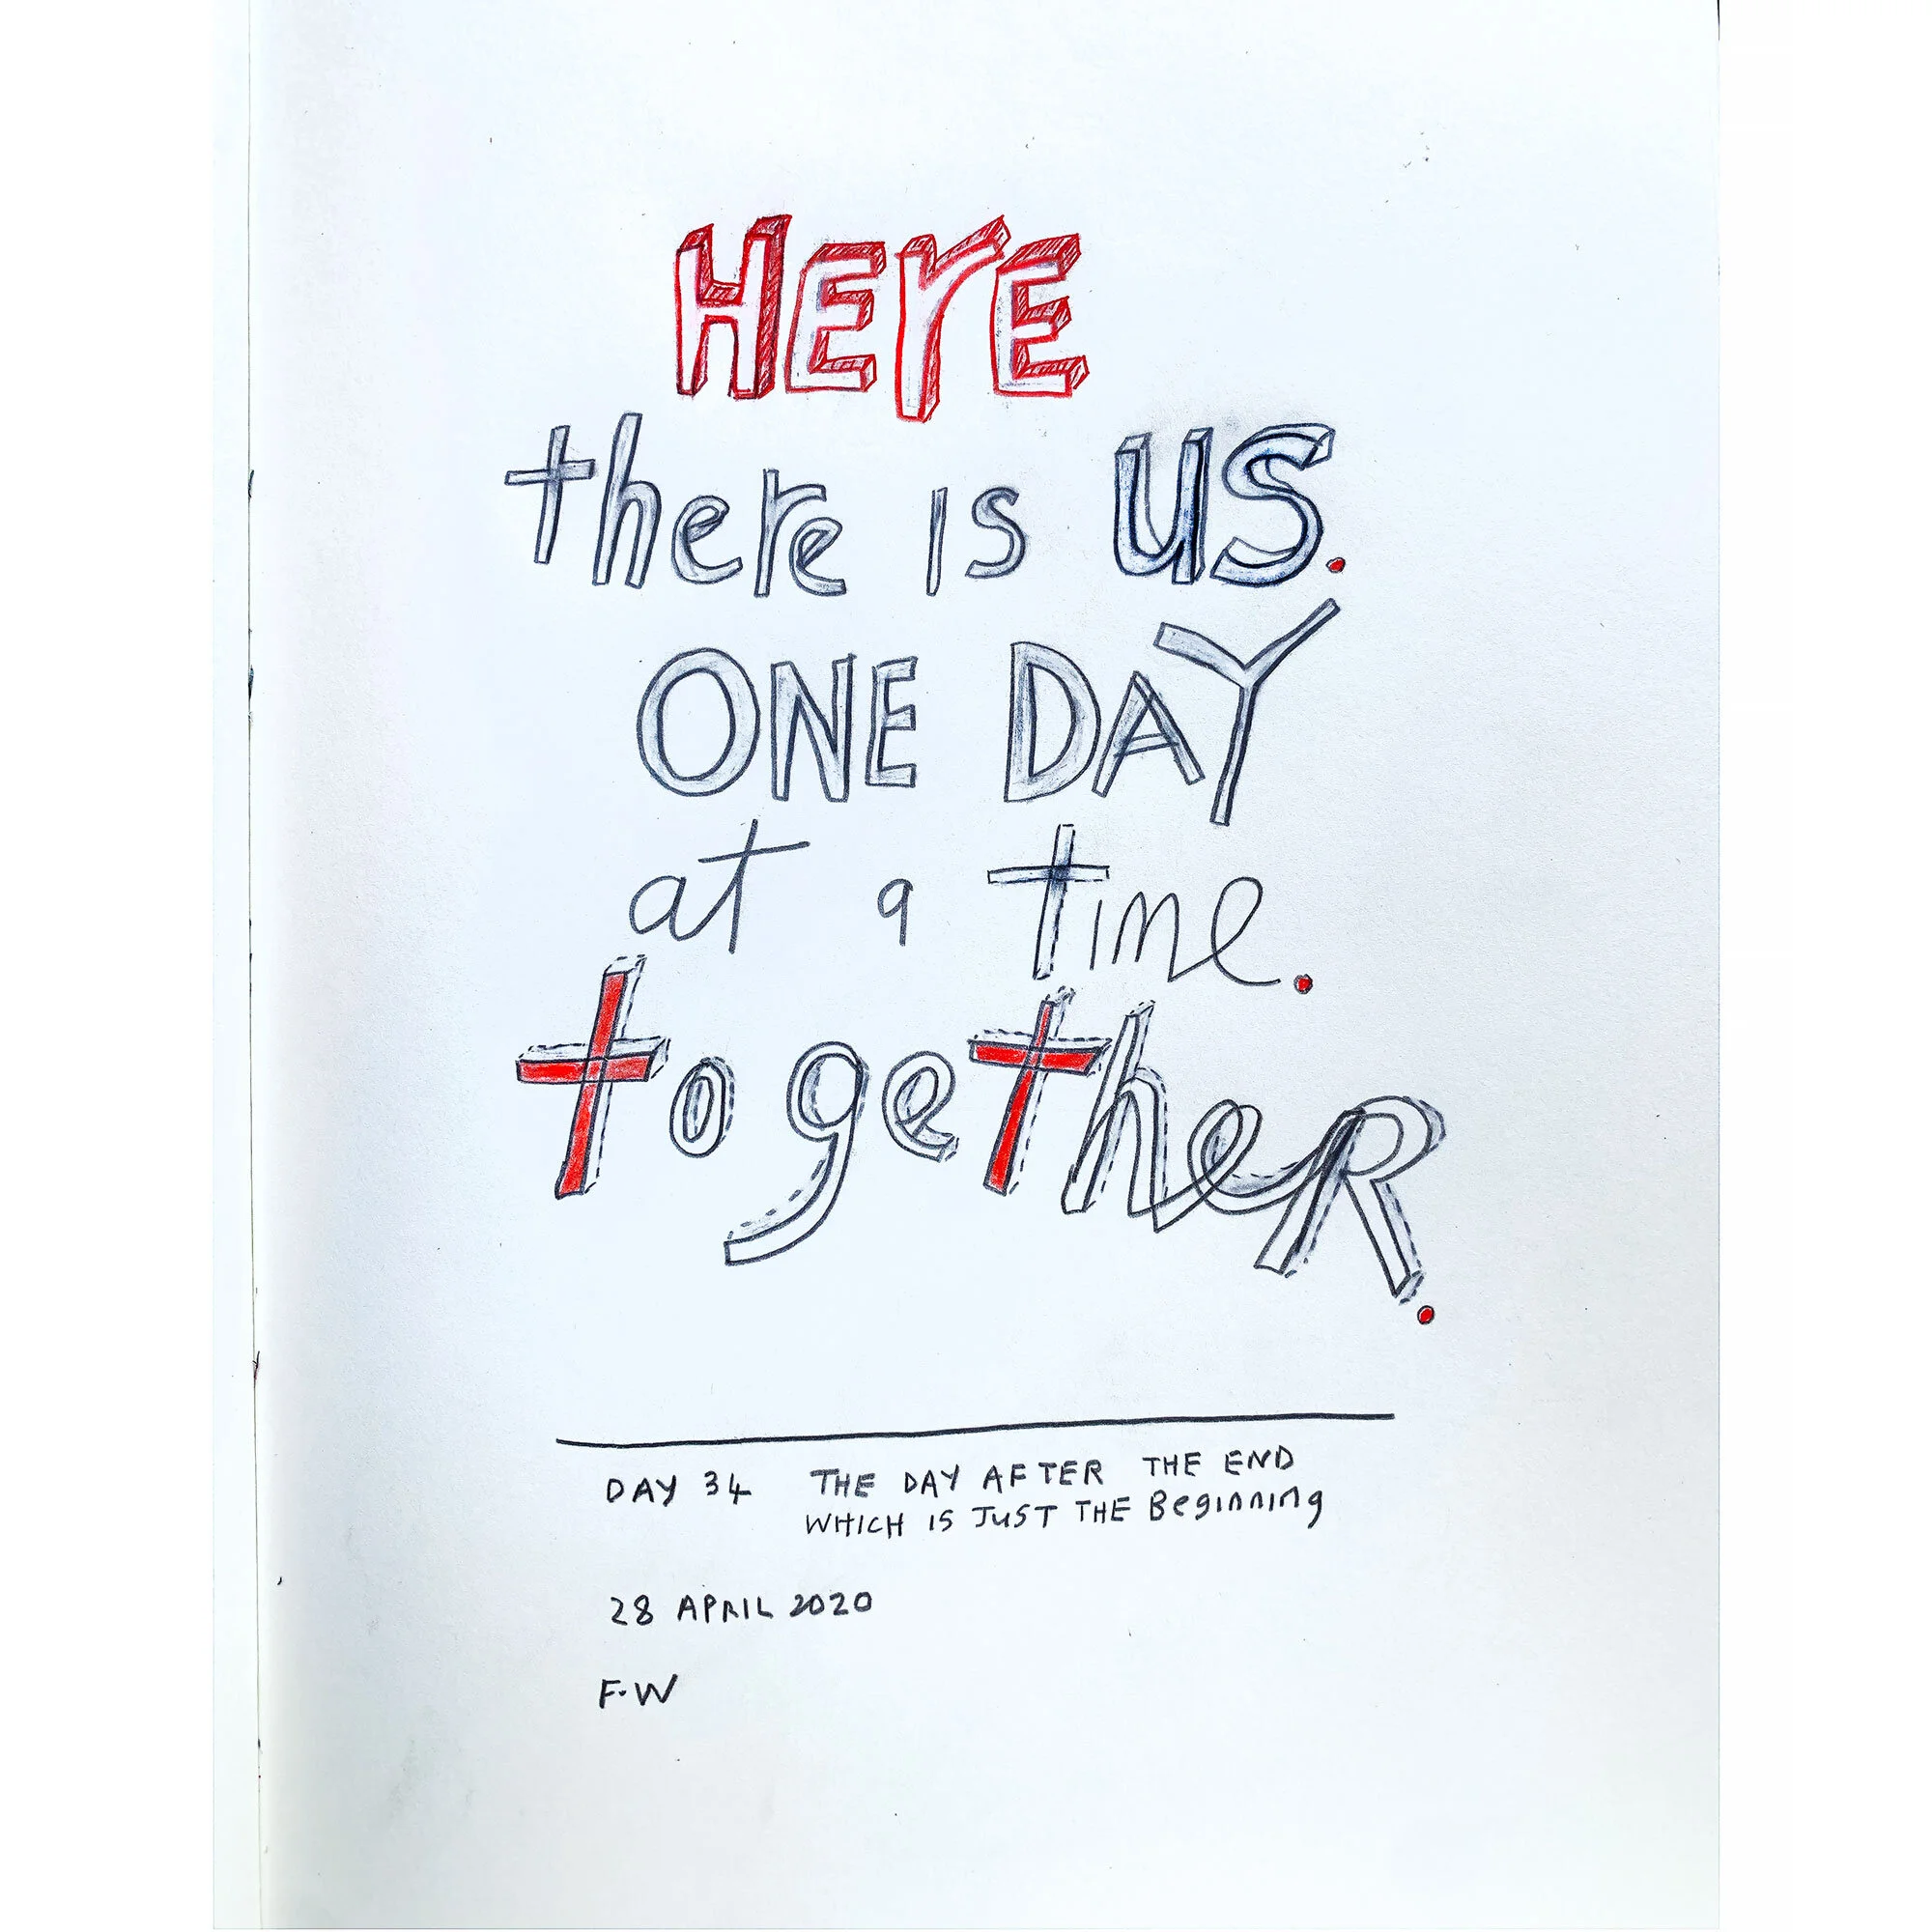 HErE
there is US.
ONE DAY
at a time.
togetheR.
DAY 34 THE DAY AFTER THE END
WHICH IS JUST THE Beginning
28 APRIL 2020
F.W